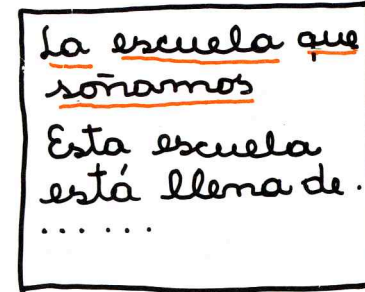 La escuela que
soñamos
Esta escuela
está llena de .
. . . . . .